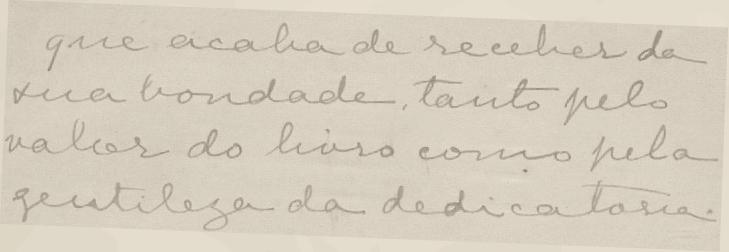 que acaba de receber da
sua bondade, tanto pelo
valor do livro como pela
gentileza da dedicatoria.